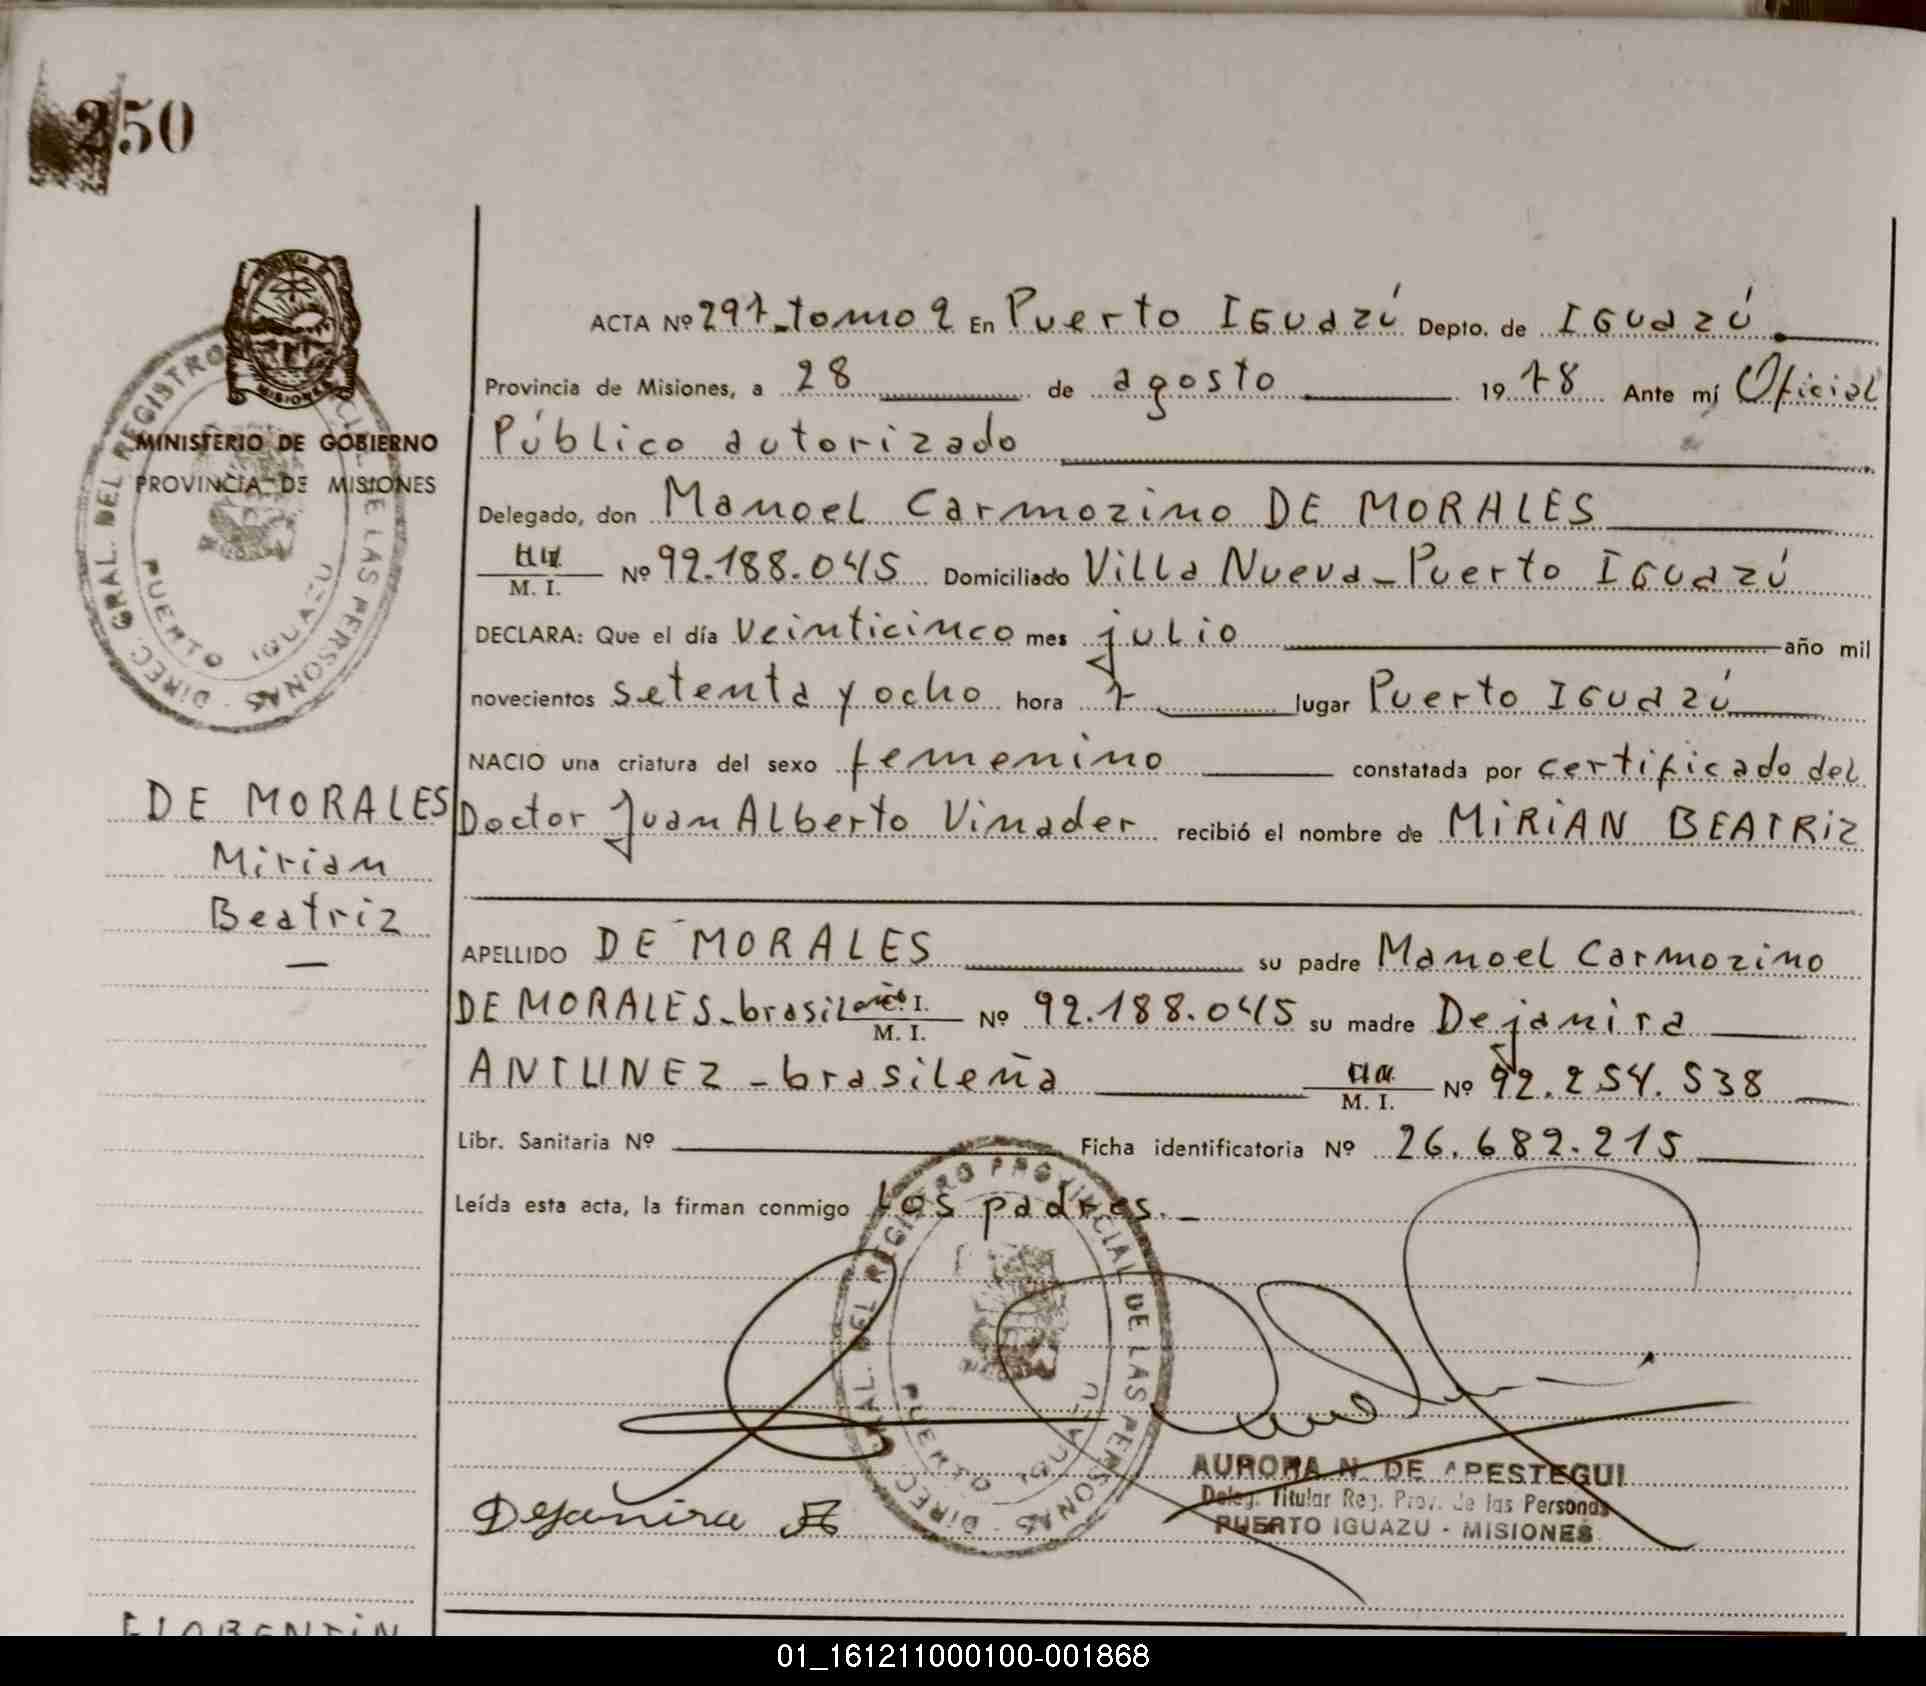 250
ACTA Nº 297 - tomo 2 En Puerto Iguazú Depto. de Iguazú
Provincia de Misiones, a 28 de agosto 1978 Ante mí Oficial
Público autorizado
MINISTERIO DE GOBIERNO
PROVINCIA DE MISIONES
DIREC. GRAL. DEL REGISTRO PROVINCIAL DE LAS PERSONAS
PUERTO IGUAZU
Delegado, don Manoel Carmozino DE MORALES
M. I. Nº 92.188.045 Domiciliado Villa Nueva - Puerto Iguazú
DECLARA: Que el día Veinticinco mes julio año mil
novecientos setenta y ocho hora 7 lugar Puerto Iguazú
NACIO una criatura del sexo femenino constatada por certificado del
Doctor Juan Alberto Vinader recibió el nombre de MIRIAN BEATRIZ
DE MORALES
Mirian
Beatriz
APELLIDO DE MORALES su padre Manoel Carmozino
DE MORALES - brasileño M. I. Nº 92.188.045 su madre Dejanira
ANTUNEZ - brasileña M. I. Nº 92.254.538
Libr. Sanitaria Nº Ficha identificatoria Nº 26.682.215
Leída esta acta, la firman conmigo los padres. -
DIREC. GRAL. DEL REGISTRO PROVINCIAL DE LAS PERSONAS
PUERTO IGUAZU
Dejanira
AURORA N. DE APESTEGUI
Deleg. Titular Reg. Prov. de las Personas
PUERTO IGUAZU - MISIONES
FLORENTIN
01_161211000100-001868